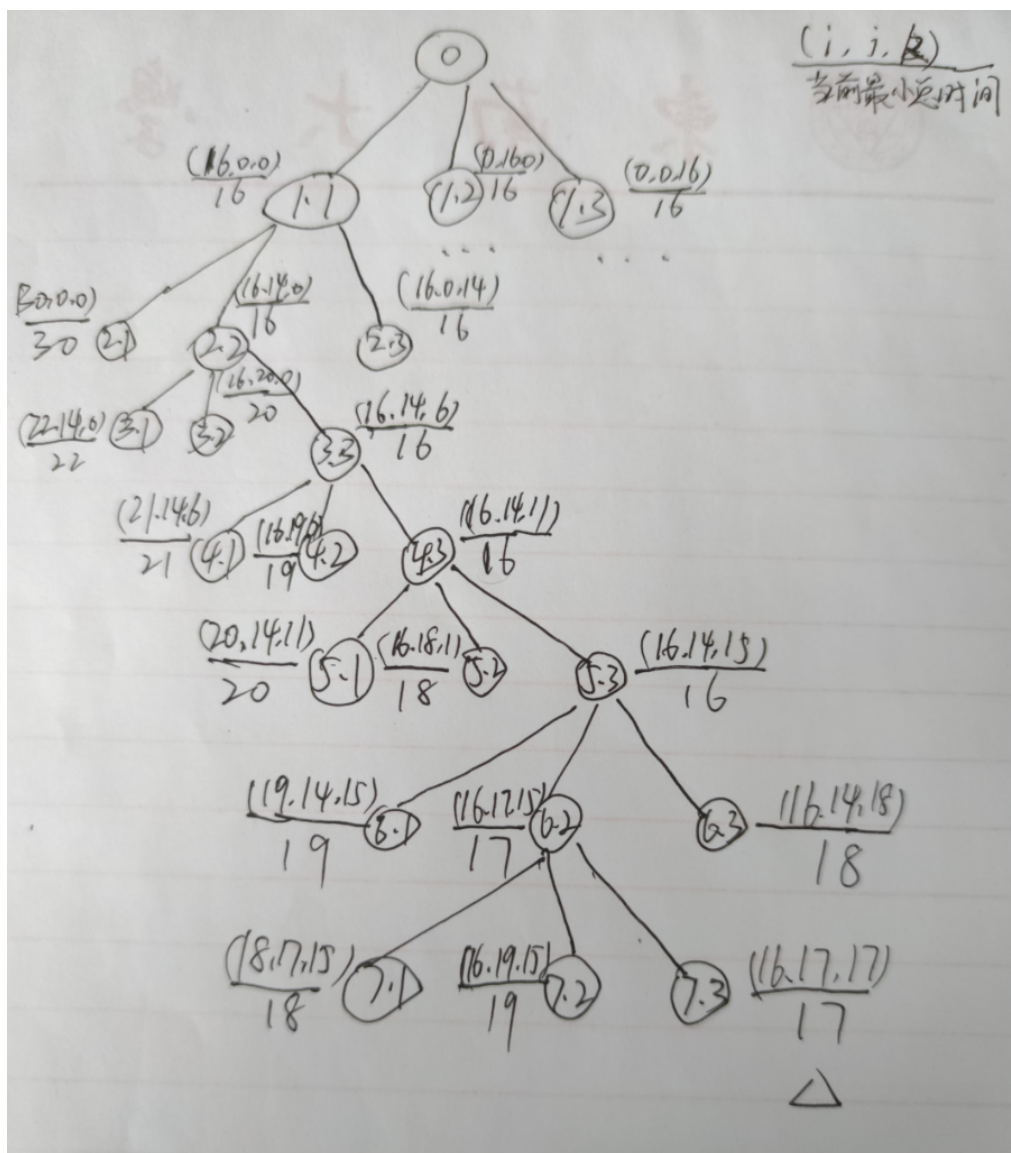 0
(i, j, k)
当前最小总时间
(16.0.0)
16
1.1
(0.16.0)
16
1.2
(0.0.16)
16
1.3
... ...
(30,0.0)
30
2.1
(16.14.0)
16
2.2
(16.0.14)
16
2.3
(22.14.0)
22
3.1
(16.20.0)
20
3.2
(16.14.6)
16
3.3
(21.14.6)
21
4.1
(16.19.6)
19
4.2
(16.14.11)
16
4.3
(20,14.11)
20
5.1
(16.18.11)
18
5.2
(16.14.15)
16
5.3
(19.14.15)
19
6.1
(16.17.15)
17
6.2
(16.14.18)
18
6.3
(18.17.15)
18
7.1
(16.19.15)
19
7.2
(16.17.17)
17
7.3